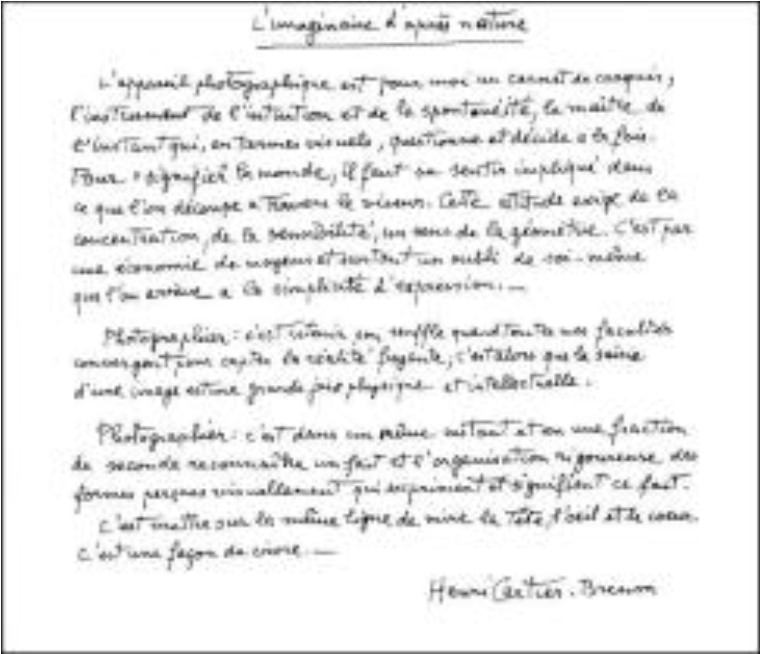 L'imaginaire d'après nature
L'appareil photographique est pour moi un carnet de croquis,
l'instrument de l'intuition et de la spontanéité, le maître de
l'instant qui, en termes visuels, questionne et décide a la fois.
Pour "signifier" le monde, il faut se sentir impliqué dans
ce que l'on découpe a travers le viseur. Cette attitude exige de la
concentration, de la sensibilité, un sens de la géométrie. C'est par
une économie de moyens et surtout un oubli de soi-même
que l'on arrive a la simplicité d'expression. —
Photographier : c'est retenir son souffle quand toutes nos facultés
convergent pour capter la réalité fuyante ; c'est alors que la saisie
d'une image est une grande joie physique et intellectuelle.
Photographier : c'est dans un même instant et en une fraction
de seconde reconnaître un fait et l'organisation rigoureuse des
formes perçues visuellement qui expriment et signifient ce fait.
C'est mettre sur la même ligne de mire la tête, l'oeil et le coeur.
C'est une façon de vivre. —
Henri Cartier-Bresson